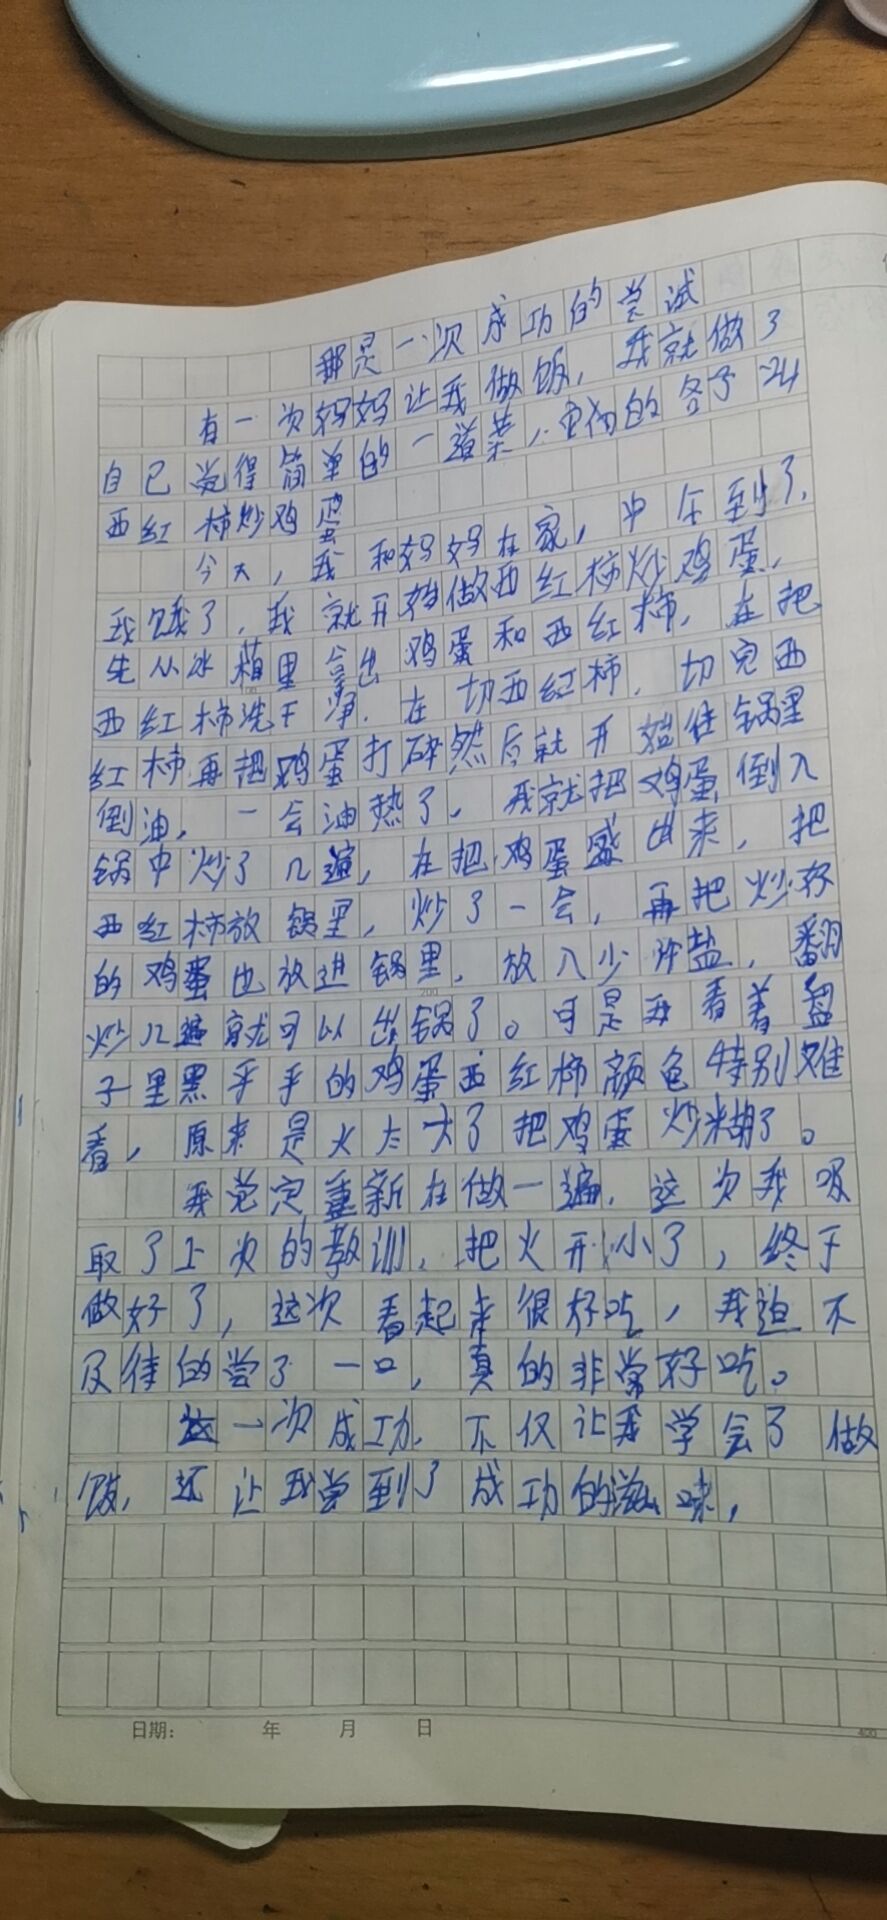 那是一次成功的尝试
有一次妈妈让我做饭，我就做了
自己觉得简单的一道菜，它的名字叫
西红柿炒鸡蛋
今天，我和妈妈在家，中午到了，
我饿了，我就开始做西红柿炒鸡蛋，
先从冰箱里拿出鸡蛋和西红柿，在把
西红柿洗干净，在切西红柿，切完西
红柿再把鸡蛋打碎然后就开始往锅里
倒油，一会油热了，我就把鸡蛋倒入
锅中炒了几遍，在把鸡蛋盛出来，把
西红柿放锅里，炒了一会，再把炒好
的鸡蛋也放进锅里，放入少许盐，翻
炒几遍就可以出锅了。可是再看着盘
子里黑乎乎的鸡蛋西红柿颜色特别难
看，原来是火太大了把鸡蛋炒糊了。
我觉定重新在做一遍，这次我吸
取了上次的教训，把火开小了，终于
做好了，这次看起来很好吃，我迫不
及待的尝了一口，真的非常好吃。
这一次成功，不仅让我学会了做
饭，还让我尝到了成功的滋味，
日期： 年 月 日
200
400